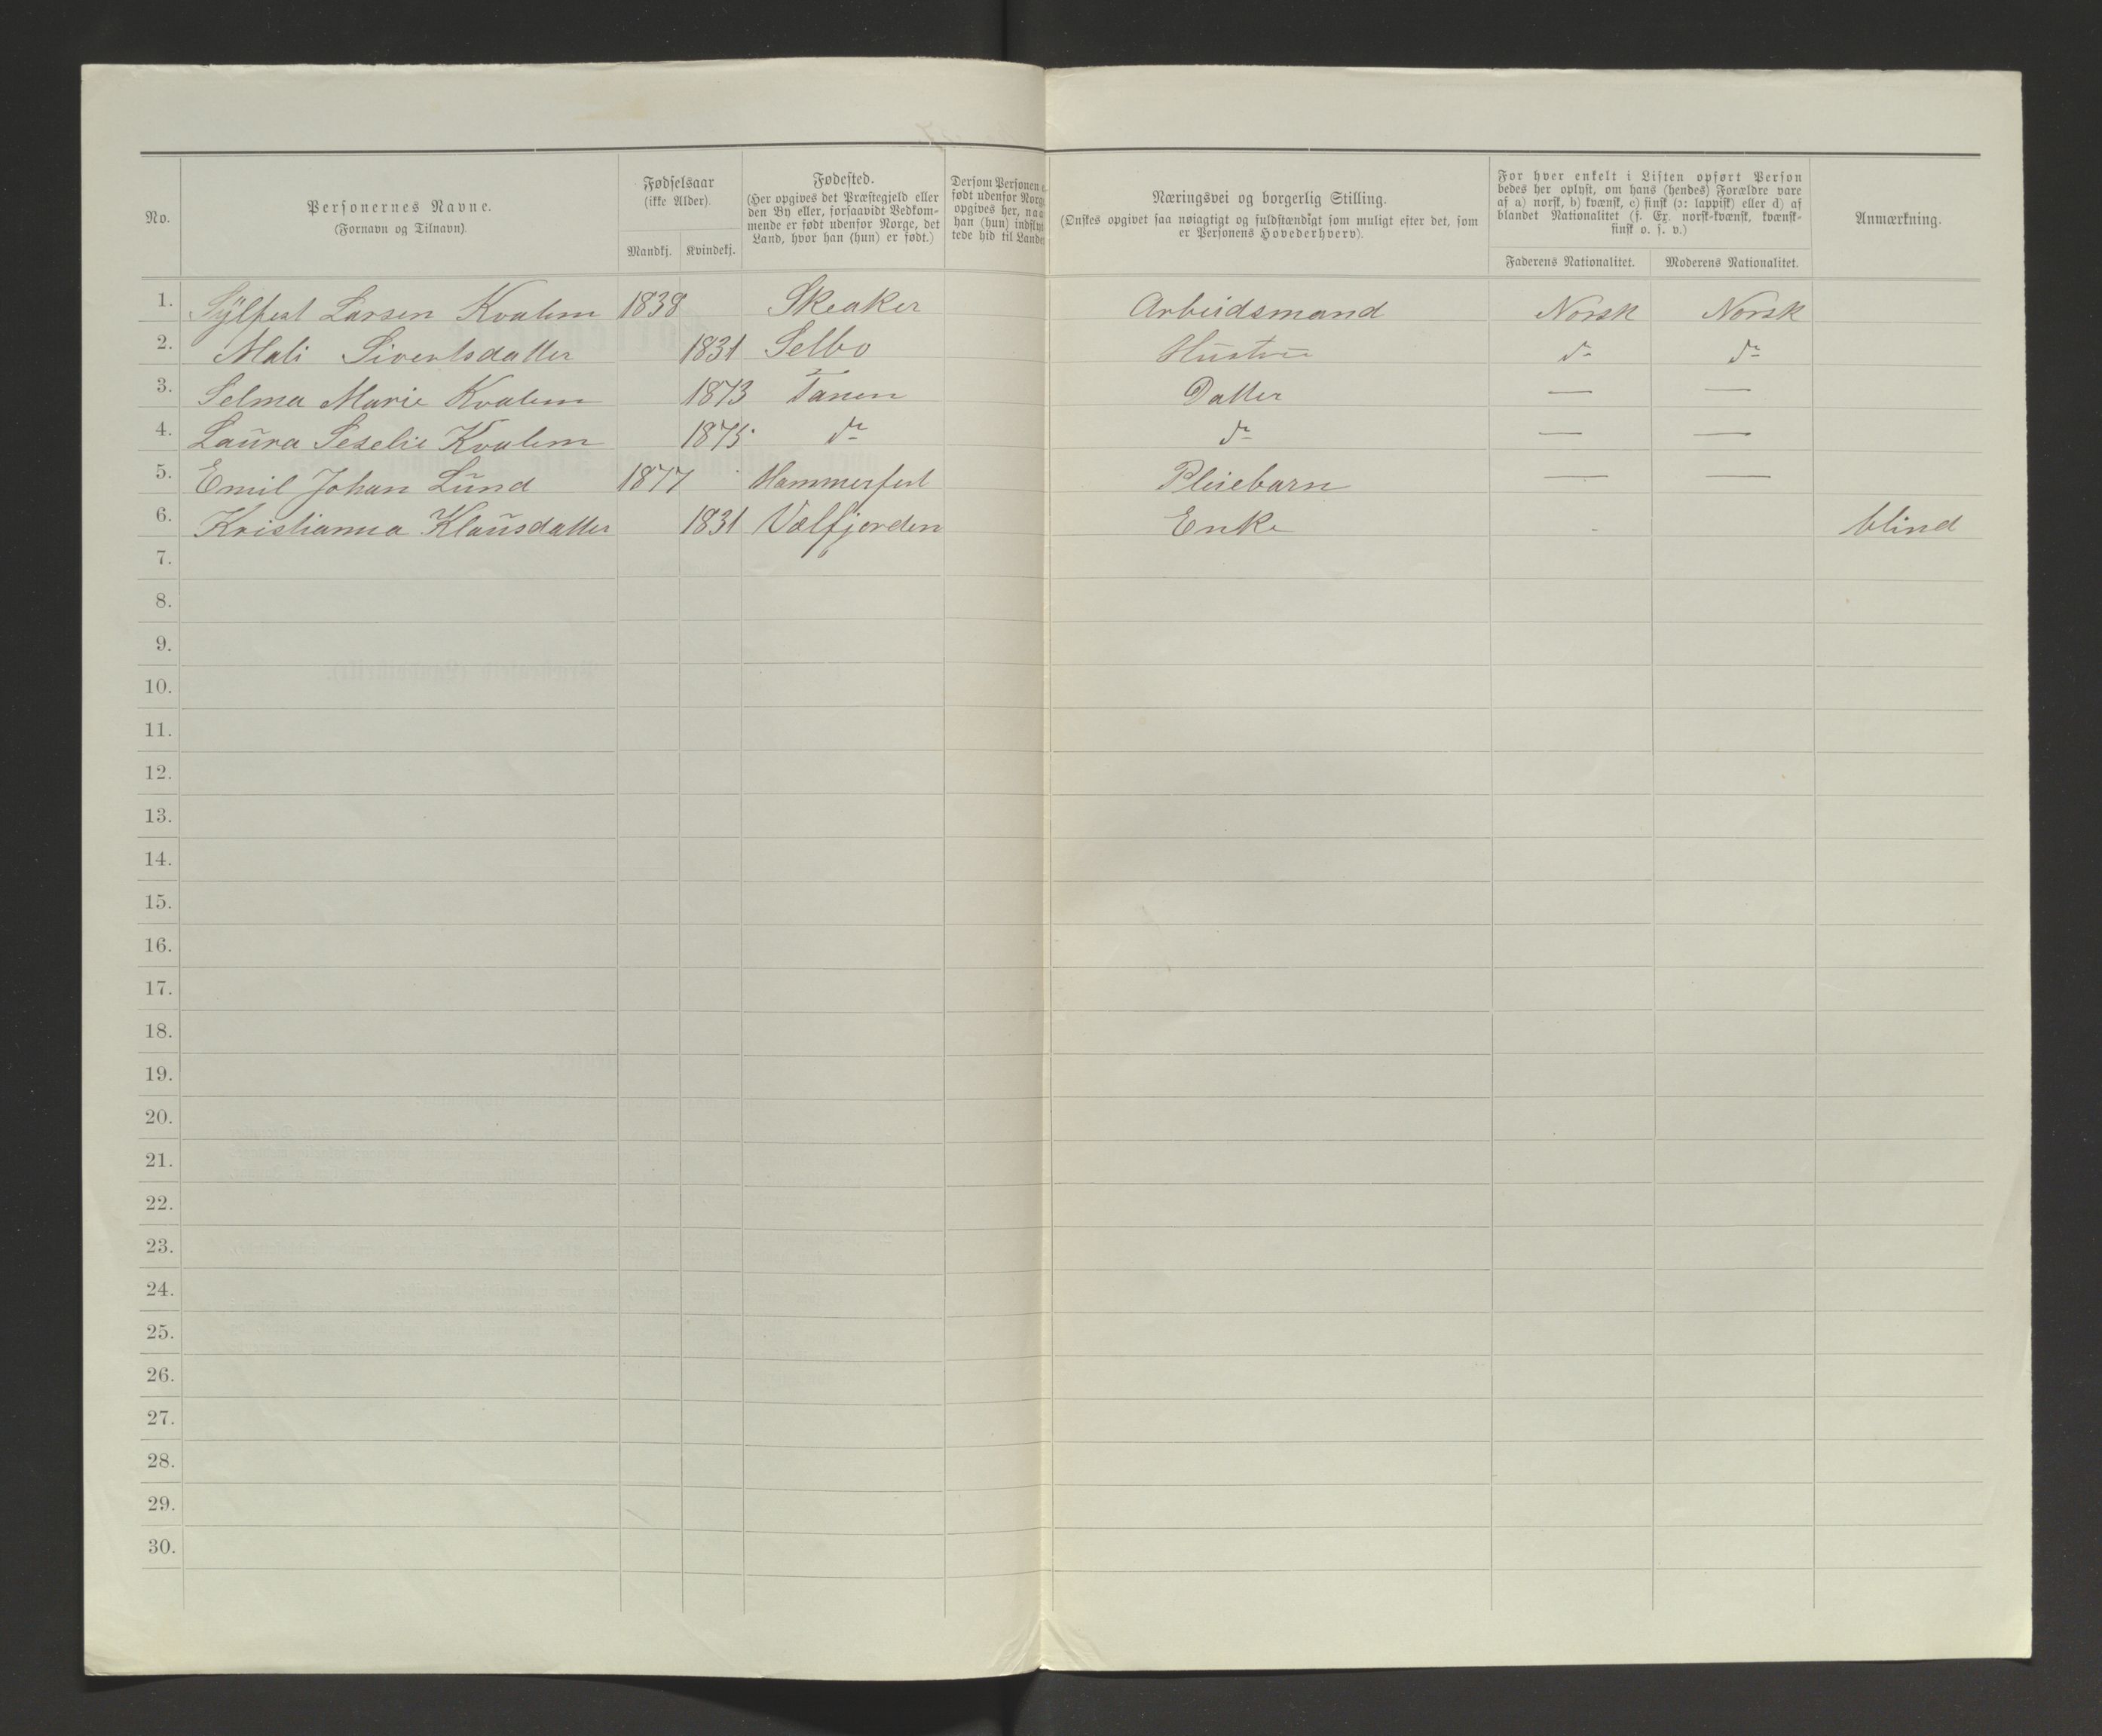 No.
Personernes Navne.
(Fornavn og Tilnavn).
Fødselsaar
(ikke Alder).
Mandkj. Kvindekj.
Fødested.
(Her opgives det Præstegjeld eller
den By eller, forsaavidt Vedkom-
mende er født udenfor Norge, det
Land, hvor han (hun) er født.)
Dersom Personen e
født udenfor Norge
opgives her, naa
han (hun) indflyt
tede hid til Landet
Næringsvei og borgerlig Stilling.
(Ønskes opgivet saa nøiagtigt og fuldstændigt som muligt efter det, som
er Personens Hovederhverv).
For hver enkelt i Listen opført Person
bedes her oplyst, om hans (hendes) Forældre vare
af a) norsk, b) kvænsk, c) finsk (ɔ: lappisk) eller d) af
blandet Nationalitet (f. Ex. norsk-kvænsk, kvænsk-
finsk o. s. v.)
Faderens Nationalitet. Moderens Nationalitet.
Anmærkning.
1. Sÿlfest Larsen Kvalem 1838 Skeaker Arbeidsmand Norsk Norsk
2. Mali Sivertsdatter 1831 Selbo Hustru do do
3. Selma Marie Kvalem 1873 Tanen Datter — —
4. Laura Seselie Kvalem 1875 do do — —
5. Emil Johan Lund 1877 Hammerfest Pleiebarn — —
6. Kristianna Klausdatter 1831 Vælfjorden Enke - — blind
7.
8.
9.
10.
11.
12.
13.
14.
15.
16.
17.
18.
19.
20.
21.
22.
23.
24.
25.
26.
27.
28.
29.
30.